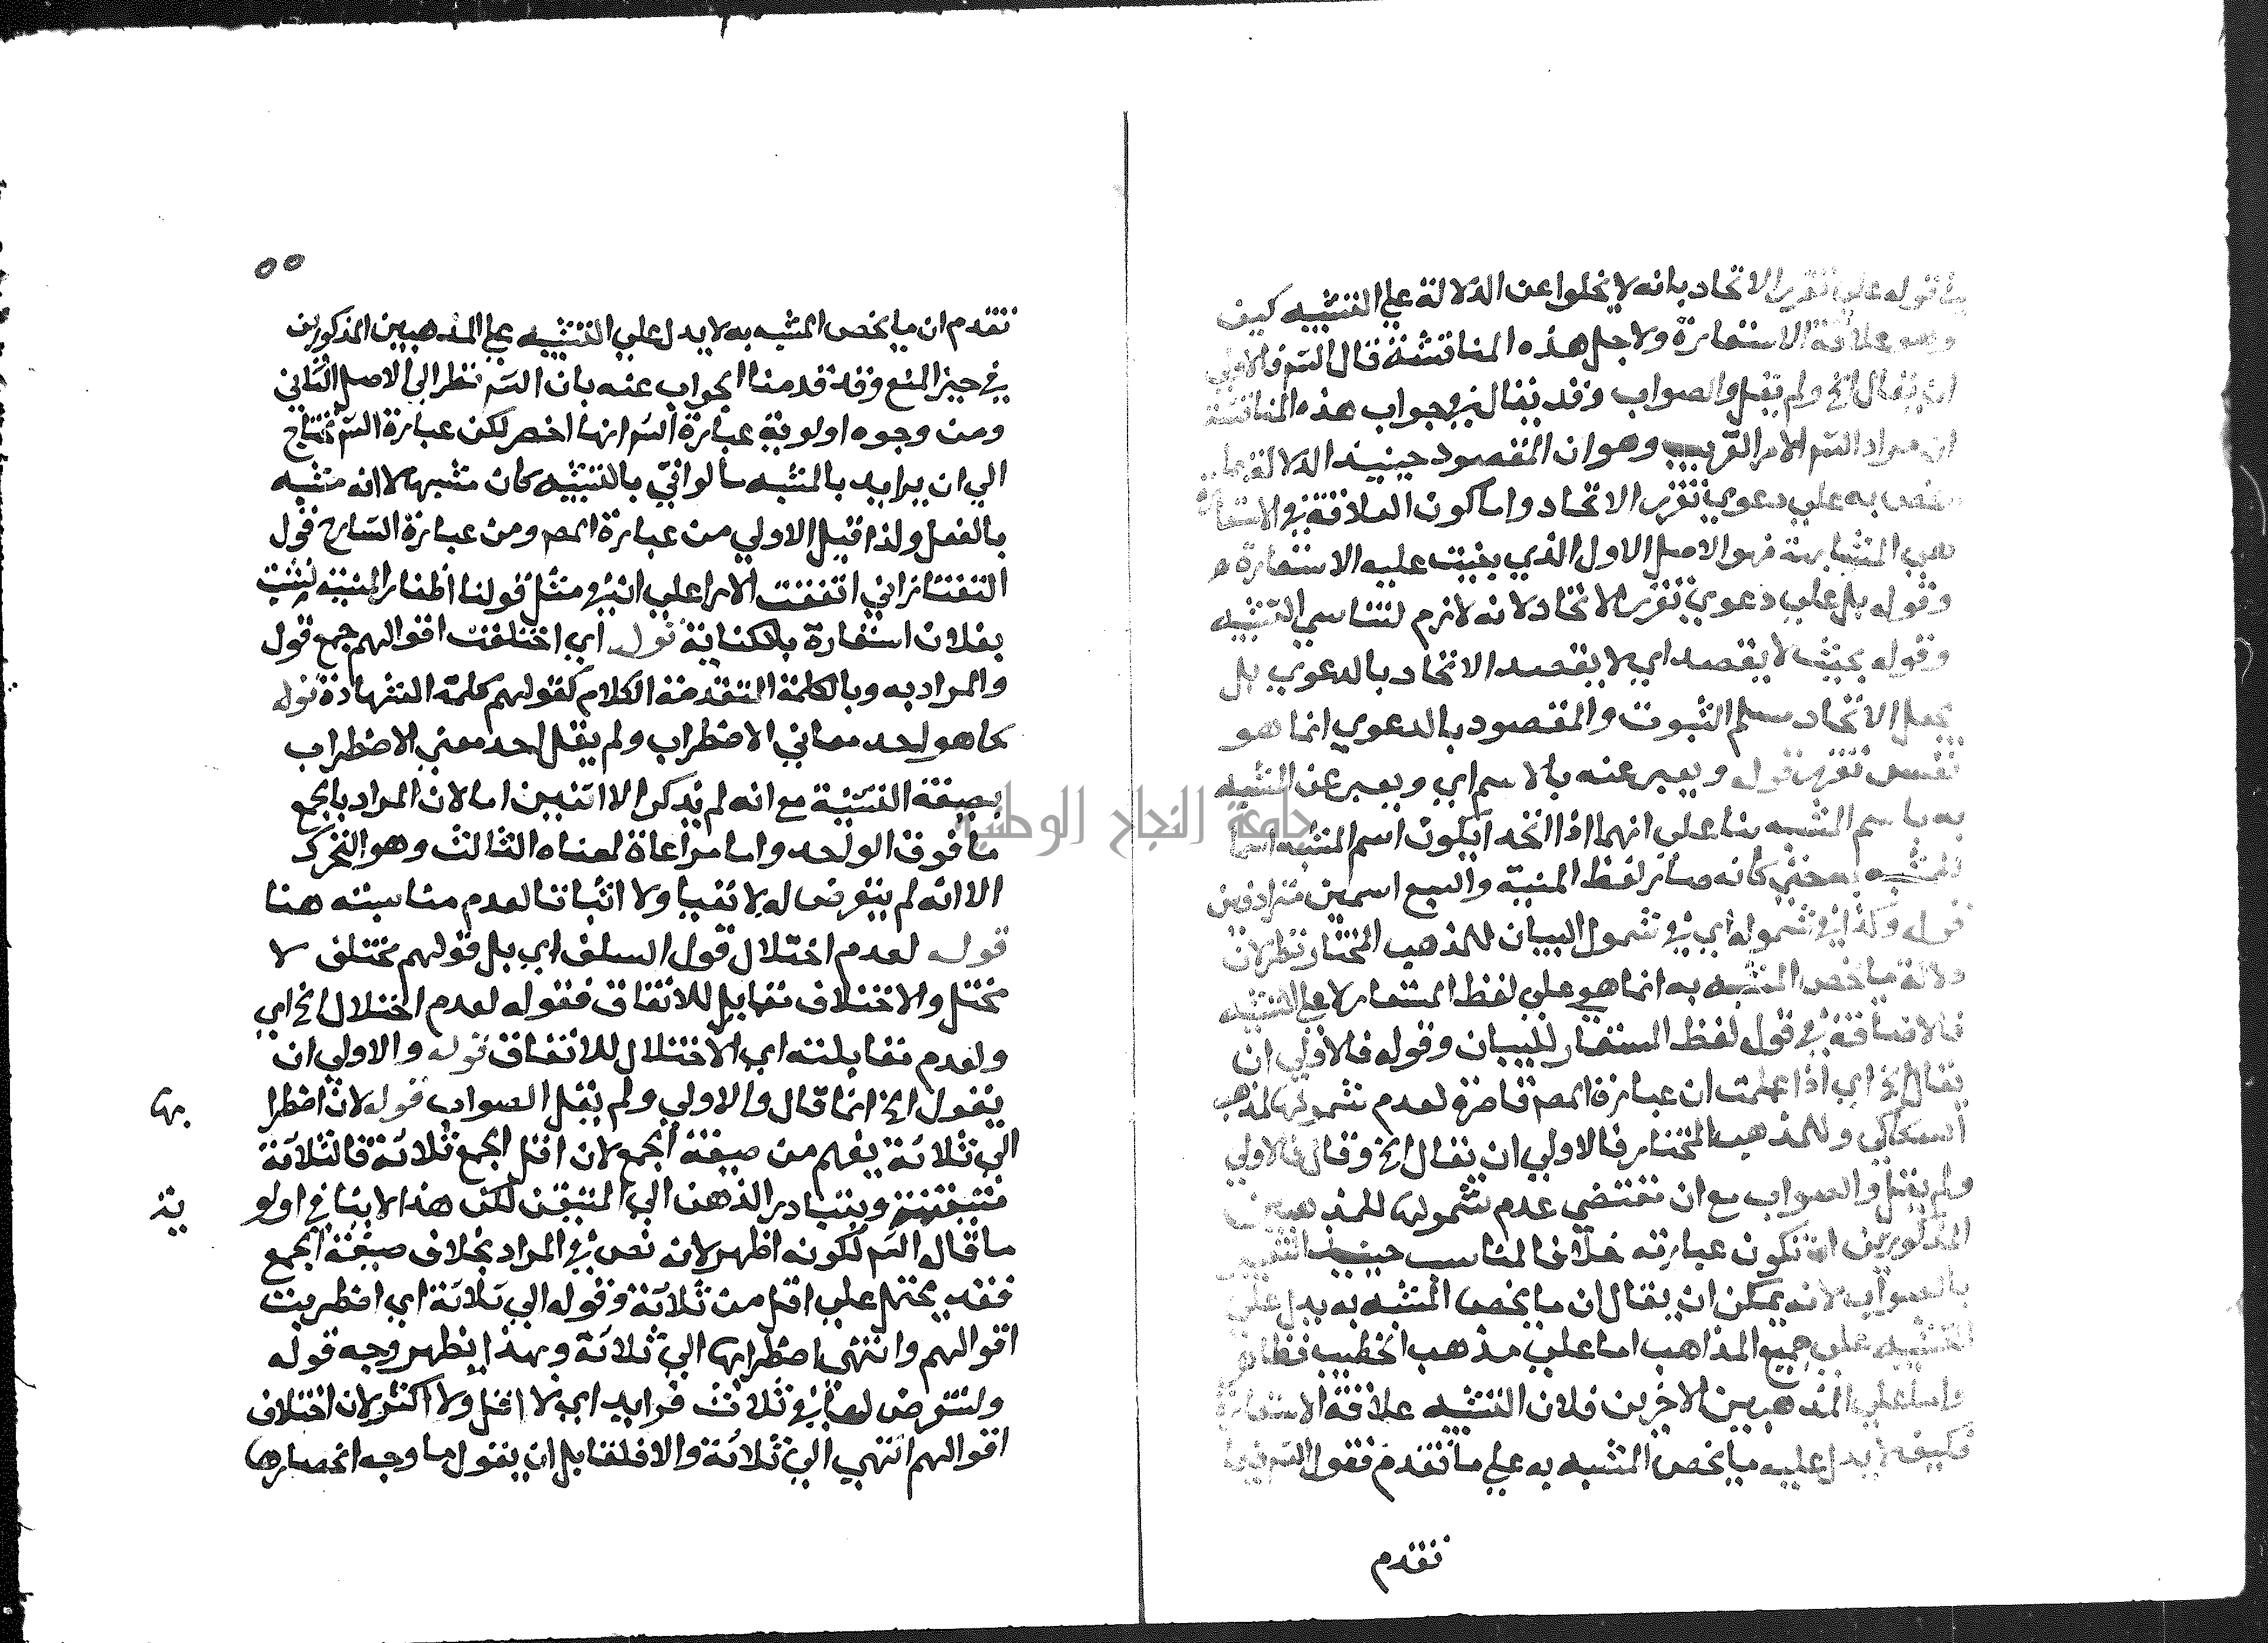 في قوله علي تقدير الاتحاد بانه لا يخلوا عن الدلالة علي التشبيه كيف
وهو علاقة الاستعارة ولاجل هذه المناقشة قال الشم فالاولي
ان يقال الخ ولم يقل والصواب وقد يقال في جواب هذه المناقشة
ان مراد الشم الامر القريب وهو ان المقصود حينيذ الدلالة بما
يخص به علي دعوي تقرير الاتحاد واما كون العلاقة في الاستعارة
هي المشابهة فهو الاصل الاول الذي بنيت عليه الاستعارة
وقوله بل علي دعوي تقرير الاتحاد لانه لازم لتناسي التشبيه
وقوله بحيث لا يقصد اي لا يقصد الاتحاد بالدعوي بل
يجعل الاتحاد مسلم الثبوت والمقصود بالدعوي انما هو
نفس تقرره قوله ويعبر عنه بالاسم اي ويعبر عن المشبه
به باسم المشبه بنا علي انهما اذا اتحدا يكون اسم المشبه اسما
للمشبه به حتي كانه صار لفظ المنية والسبع اسمين مترادفين
قوله وكذا في شموله اي في شمول البيان للمذهب المختار نظر لان
دلالة ما خص المشبه به انما هو علي لفظ المستعار لا علي التشبيه
فالاضافة في قول لفظ المستعار للبيان وقوله فالاولي ان
يقال الخ اي اذا علمت ان عبارة المصم قاصرة لعدم شمولها لمذهب
السكاكي وللمذهب المختار فالاولي ان يقال الخ وقال فالاولي
ولم يقل والصواب مع ان مقتضي عدم شمولها للمذهبين
المذكورين ان تكون عبارته خلاف المناسب حينيذ التعبير
بالصواب لانه يمكن ان يقال ان ما يخص المشبه به يدل علي
التشبيه علي جميع المذاهب اما علي مذهب الخطيب فظاهر
واما علي المذهبين الاخرين فلان التشبيه علاقة الاستعارة
فكيف لا يدل عليه ما يخص المشبه به علي ما تقدم فقول الشم فيما
تقدم
٥٥
تقدم ان ما يخص المشبه به لا يدل علي التشبيه علي المذهبين المذكورين
في حيز المنع وقد قدمنا الجواب عنه بان الشم نظر الي الاصل الثاني
ومن وجوه اولوية عبارة الشم انها اخصر لكن عبارة الشم تحتاج
الي ان يراد بالمشبه ما لو اتي بالتشبيه كان مشبها لا انه مشبه
بالفعل ولذا قيل الاولي من عبارة المصم ومن عبارة الشارح قول
التفتازاني اتفقت الاراء علي ان في مثل قولنا اظفار المنية نشبت
بفلان استعارة بالكناية قوله اي اختلفت اقوالهم جمع قول
والمراد به وبالكلمة المتقدمة الكلام كقولهم كلمة الشهادة قوله
كما هو احد معاني الاضطراب ولم يقل احد معني الاضطراب
بصيغة التثنية مع انه لم يذكر الا اثنين اما لان المراد بالجمع
ما فوق الواحد واما مراعاة لمعناه الثالث وهو التحرك
الا انه لم يتعرض له لا نفيا ولا اثباتا لعدم مناسبته هنا
قوله لعدم اختلال قول السلف اي بل قولهم مختلف لا
مختل والاختلاف مقابل للاتفاق فقوله لعدم اختلال الخ اي
ولعدم مقابلته اي الاختلال للاتفاق قوله والاولي ان
يقول الخ انما قال والاولي ولم يقل الصواب قوله لان اضطرا
بها
الي ثلاثة يفهم من صيغة الجمع لان اقل الجمع ثلاثة فالثلاثة
متيقنة ويتبادر الذهن الي المتيقن لكن هذا لا ينافي اولو
ية
ما قال الشم لكونه اظهر لانه نص في المراد بخلاف صيغة الجمع
فقد يحتمل علي اقل من ثلاثة وقوله الي ثلاثة اي اضطربت
اقوالهم وانتهي اضطرابها الي ثلاثة وبهذا يظهر وجه قوله
ولنتعرض لها في ثلاث فرايد اي لا اقل ولا اكثر لان اختلاف
اقوالهم انتهي الي ثلاثة والا فلقابل ان يقول ما وجه انحصارها
جامعة النجاح الوطنية